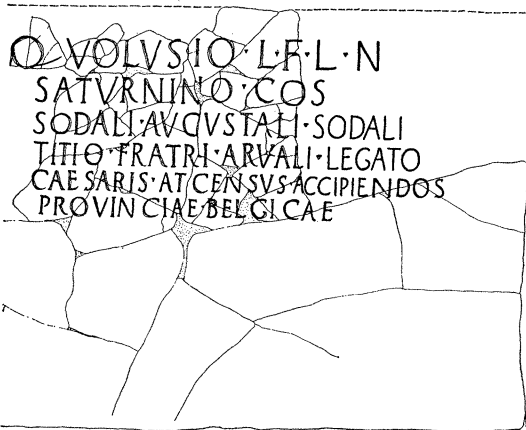 Q VOLVSIO·L·F·L·N
SATVRNINO·COS
SODALI·AVGVSTALI·SODALI
TITIO·FRATRI·ARVALI·LEGATO
CAESARIS·AT CENSVS·ACCIPIENDOS
PROVINCIAE BELGICAE